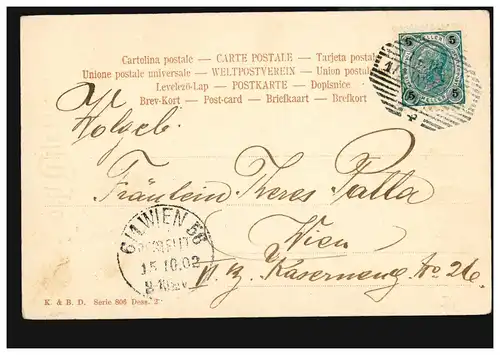 Cartolina postale — CARTE POSTALE — Tarjeta postal
Unione postale universale — WELTPOSTVEREIN — Union postal
Levelező-Lap — POSTKARTE — Dopisnice
Brev-Kort — Post-card — Briefkaart — Brefkort
5 5
5 5
Holgeb.
Fräulein Theres Palla
Wien
6/1 WIEN 56
15.10.02
Kaserneng. No 26.
K. & B. D. Serie 806 Dess.